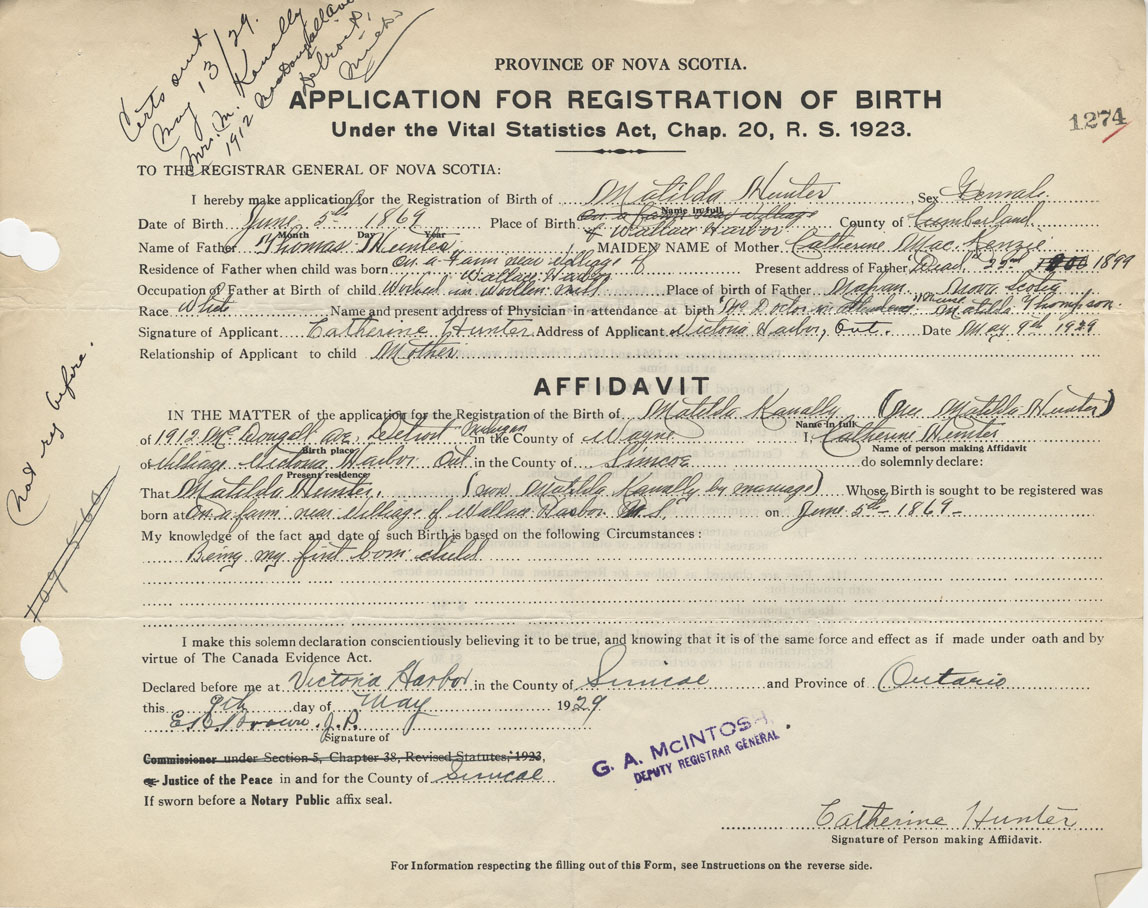 Certs out
May 13/29.
Mrs. M. Kanally
1912 MacDougall Ave
Detroit,
Mich
PROVINCE OF NOVA SCOTIA.
APPLICATION FOR REGISTRATION OF BIRTH
Under the Vital Statistics Act, Chap. 20, R. S. 1923.
1274
TO THE REGISTRAR GENERAL OF NOVA SCOTIA:
I hereby make application for the Registration of Birth of Matilda Hunter Sex Female
Name in full
Date of Birth June 5th 1869 Place of Birth On a farm near village of Wallace Harbor County of Cumberland
Month Day Year
Name of Father Thomas Hunter MAIDEN NAME of Mother Catherine Mac Kenzie
Residence of Father when child was born On a Farm near village of Wallace Harbor Present address of Father Dead 1899
Occupation of Father at Birth of child Worked in Woollen Mill Place of birth of Father Nova Scotia
Race White Name and present address of Physician in attendance at birth No Doctor in attendance Nurse Matilda Thompson
Signature of Applicant Catherine Hunter Address of Applicant Victoria Harbor, Ont. Date May 9th 1929
Relationship of Applicant to child Mother
AFFIDAVIT
IN THE MATTER of the application for the Registration of the Birth of Matilda Kanally (nee Matilda Hunter)
Name in full
of 1912 McDougall ave, Detroit Michigan in the County of Wayne I, Catherine Hunter
Birth place Name of person making Affidavit
of Village Victoria Harbor Ont in the County of Simcoe do solemnly declare:
Present residence
That Matilda Hunter, (now Matilda Kanally by marriage) Whose Birth is sought to be registered was
born at On a farm near village of Wallace Harbor N.S. on June 5th 1869
My knowledge of the fact and date of such Birth is based on the following Circumstances:
Being my first born child
Not reg before.
I make this solemn declaration conscientiously believing it to be true, and knowing that it is of the same force and effect as if made under oath and by
virtue of The Canada Evidence Act.
Declared before me at Victoria Harbor in the County of Simcoe and Province of Ontario
this 9th day of May 1929
E. Brown J.P.
Signature of
Commissioner under Section 5, Chapter 38, Revised Statutes, 1923,
or Justice of the Peace in and for the County of Simcoe
If sworn before a Notary Public affix seal.
G. A. McINTOSH.
DEPUTY REGISTRAR GENERAL
Catherine Hunter
Signature of Person making Affiidavit.
For Information respecting the filling out of this Form, see Instructions on the reverse side.